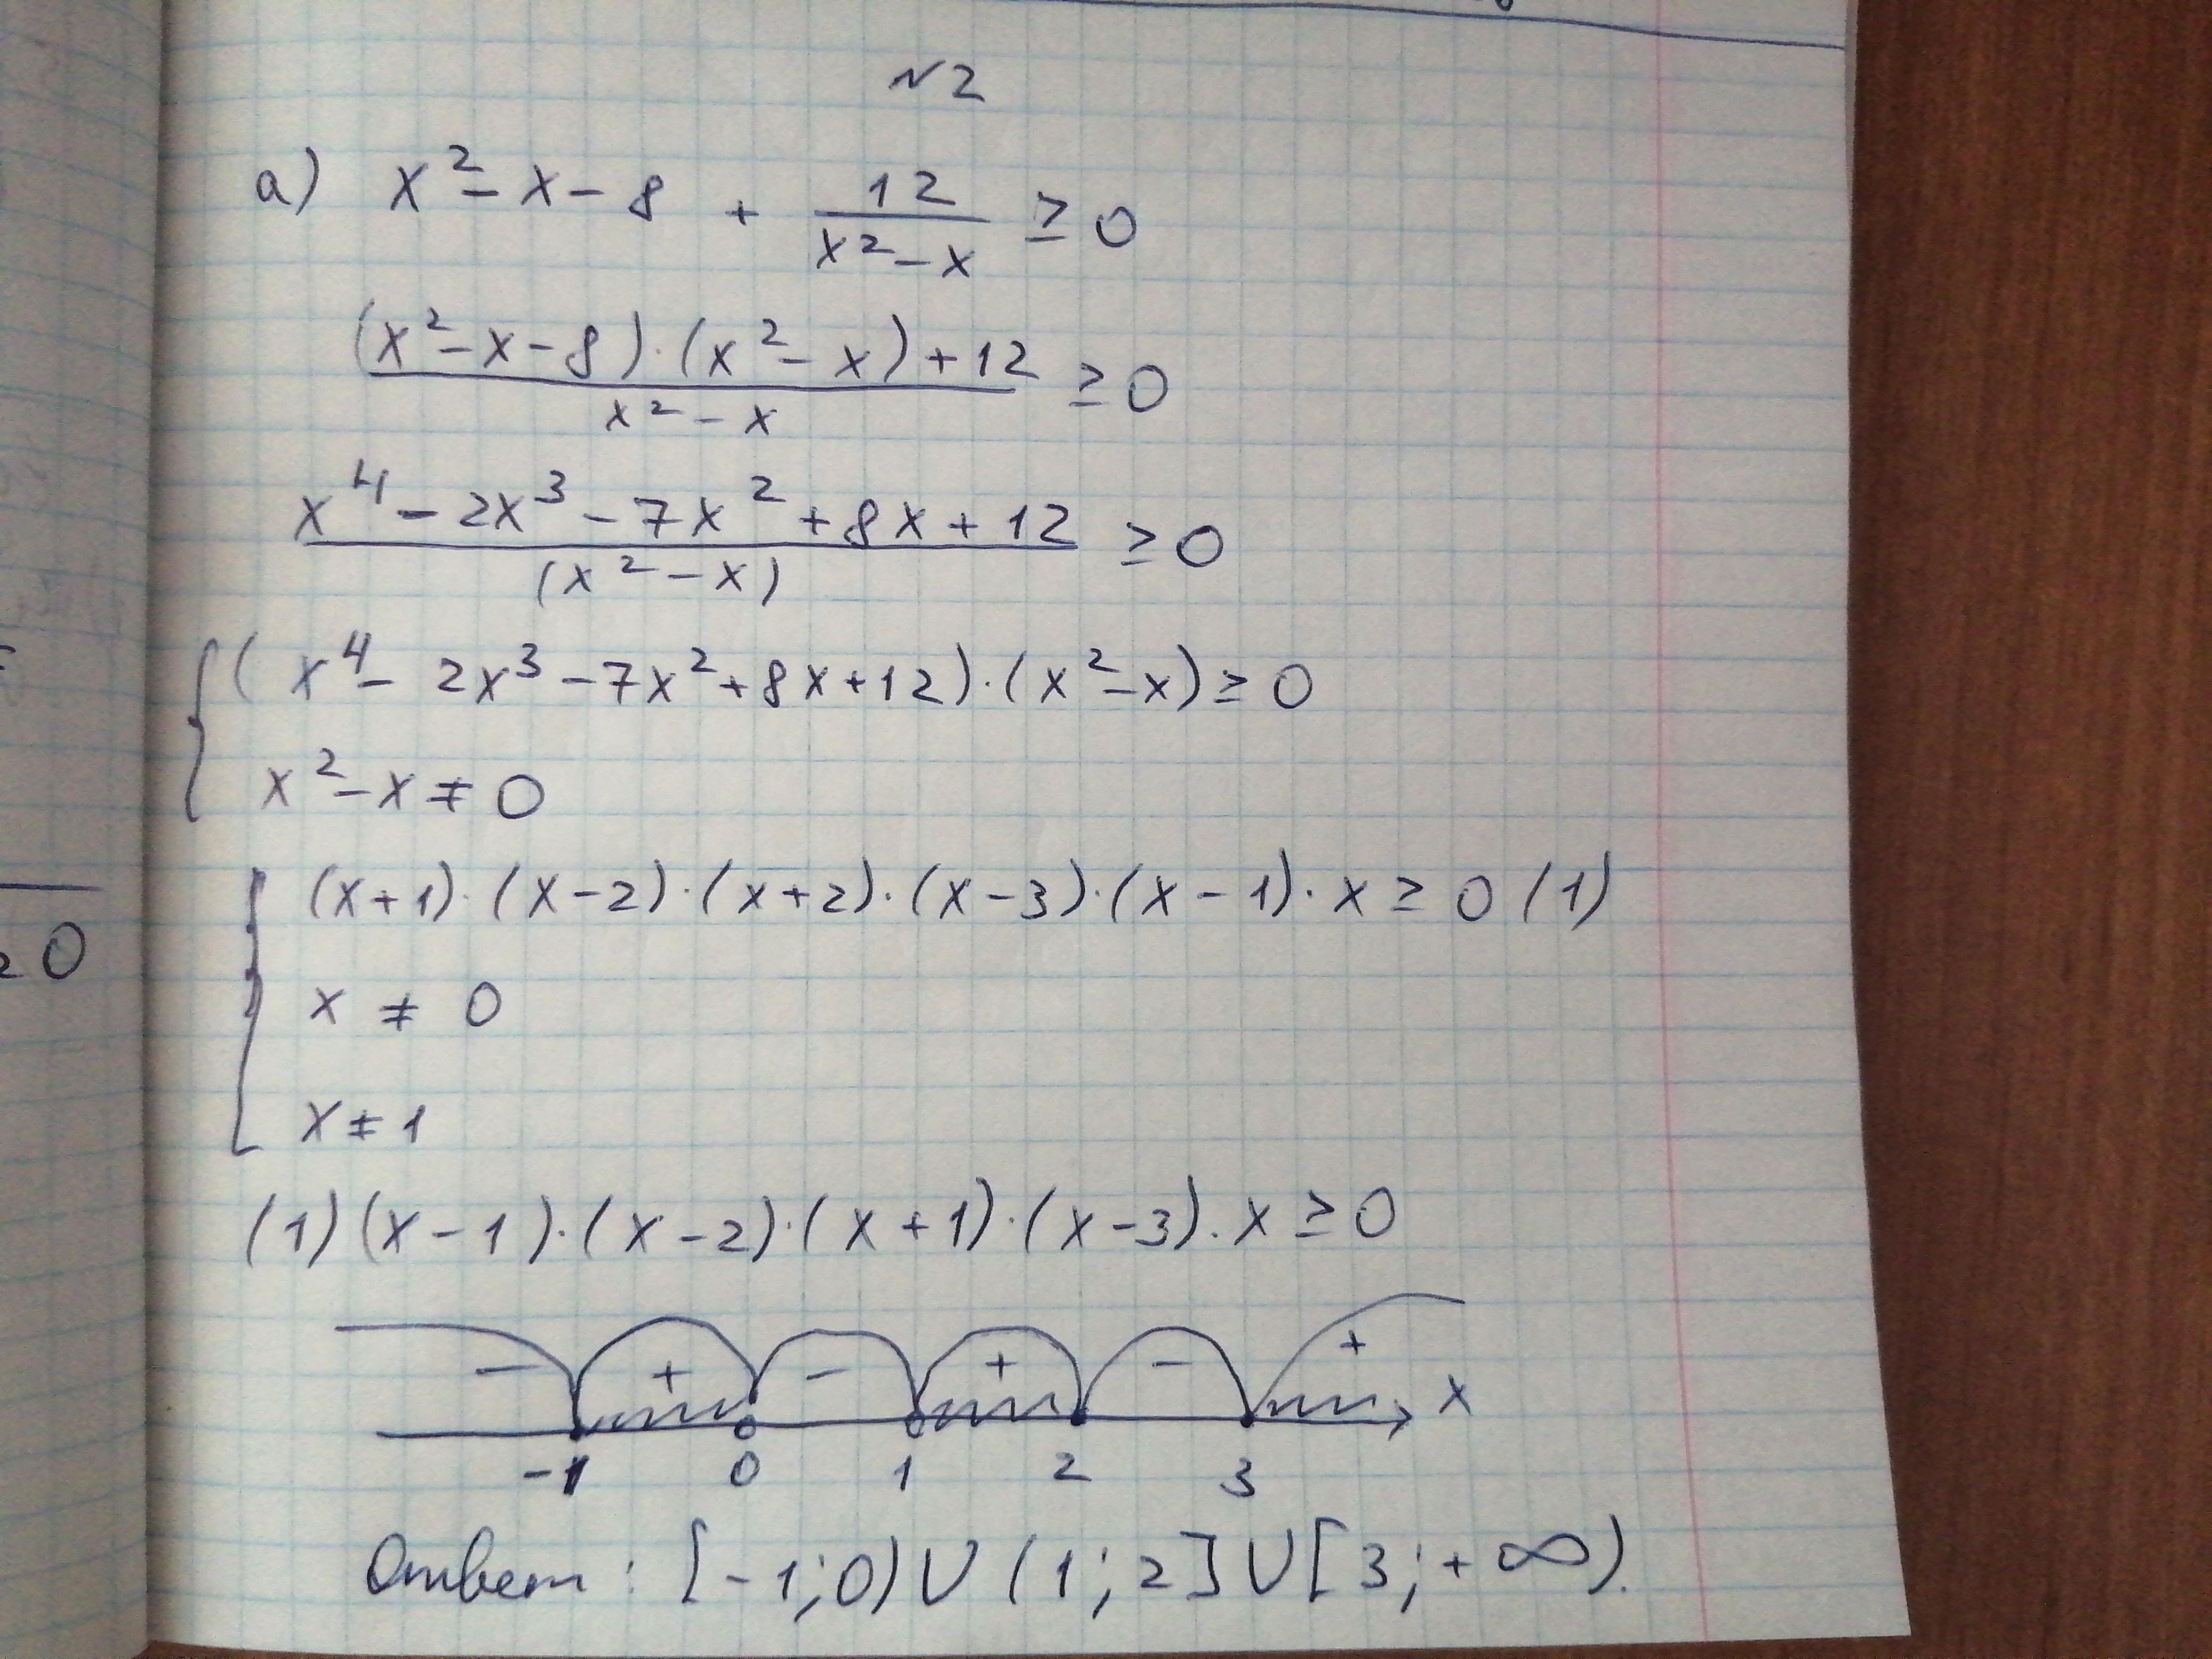 №2
а) x² - x - 8 + 12/(x² - x) ≥ 0
((x² - x - 8)·(x² - x) + 12)/(x² - x) ≥ 0
(x⁴ - 2x³ - 7x² + 8x + 12)/((x² - x)) ≥ 0
{ (x⁴ - 2x³ - 7x² + 8x + 12)·(x² - x) ≥ 0
x² - x ≠ 0
{ (x+1)·(x-2)·(x+2)·(x-3)·(x-1)·x ≥ 0 (1)
x ≠ 0
x ≠ 1
(1) (x-1)·(x-2)·(x+1)·(x-3)·x ≥ 0
- + - + - + x
-1 0 1 2 3
Ответ: [-1;0)∪(1;2]∪[3;+∞).
≥0